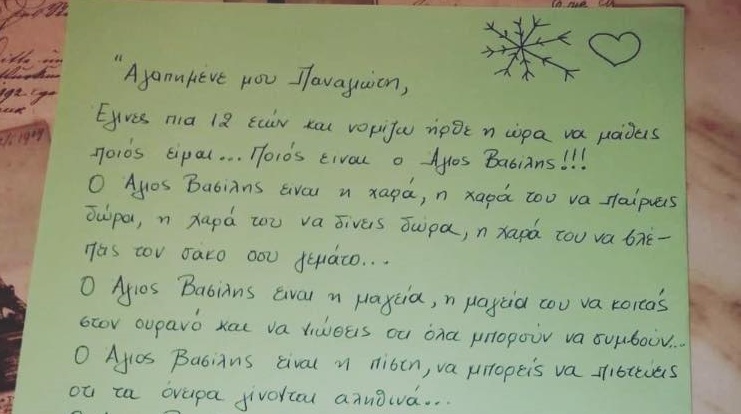 "Αγαπημένε μου Παναγιώτη,
Έγινες πια 12 ετών και νομίζω ήρθε η ώρα να μάθεις
ποιός είμαι... Ποιός είναι ο Άγιος Βασίλης!!!
Ο Άγιος Βασίλης είναι η χαρά, η χαρά του να παίρνεις
δώρα, η χαρά του να δίνεις δώρα, η χαρά του να βλέ-
πεις τον σάκο σου γεμάτο...
Ο Άγιος Βασίλης είναι η μαγεία, η μαγεία του να κοιτάς
στον ουρανό και να νιώθεις οτι όλα μπορούν να συμβούν...
Ο Άγιος Βασίλης είναι η πίστη, να μπορείς να πιστεύεις
οτι τα όνειρα γίνονται αληθινά...